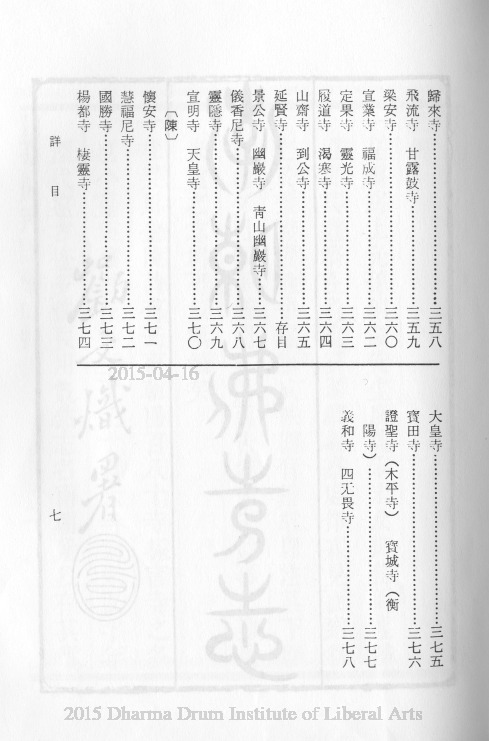 歸來寺……………………三五八
飛流寺　甘露鼓寺……………………三五九
梁安寺……………………三六〇
宣業寺　福成寺……………………三六二
定果寺　靈光寺……………………三六三
履道寺　渴寒寺……………………三六四
山齋寺　到公寺……………………三六五
延賢寺……………………存目
景公寺　幽巖寺　青山幽巖寺……………………三六七
儀香尼寺……………………三六八
靈隱寺……………………三六九
宣明寺　天皇寺……………………三七〇
〔陳〕
懷安寺……………………三七一
慧福尼寺……………………三七二
國勝寺……………………三七三
楊都寺　棲靈寺……………………三七四
大皇寺……………………三七五
寶田寺……………………三七六
證聖寺（木平寺）　寶城寺（衡
陽寺）……………………三七七
義和寺　四无畏寺……………………三七八
詳目
七
2015-04-16
2015 Dharma Drum Institute of Liberal Arts